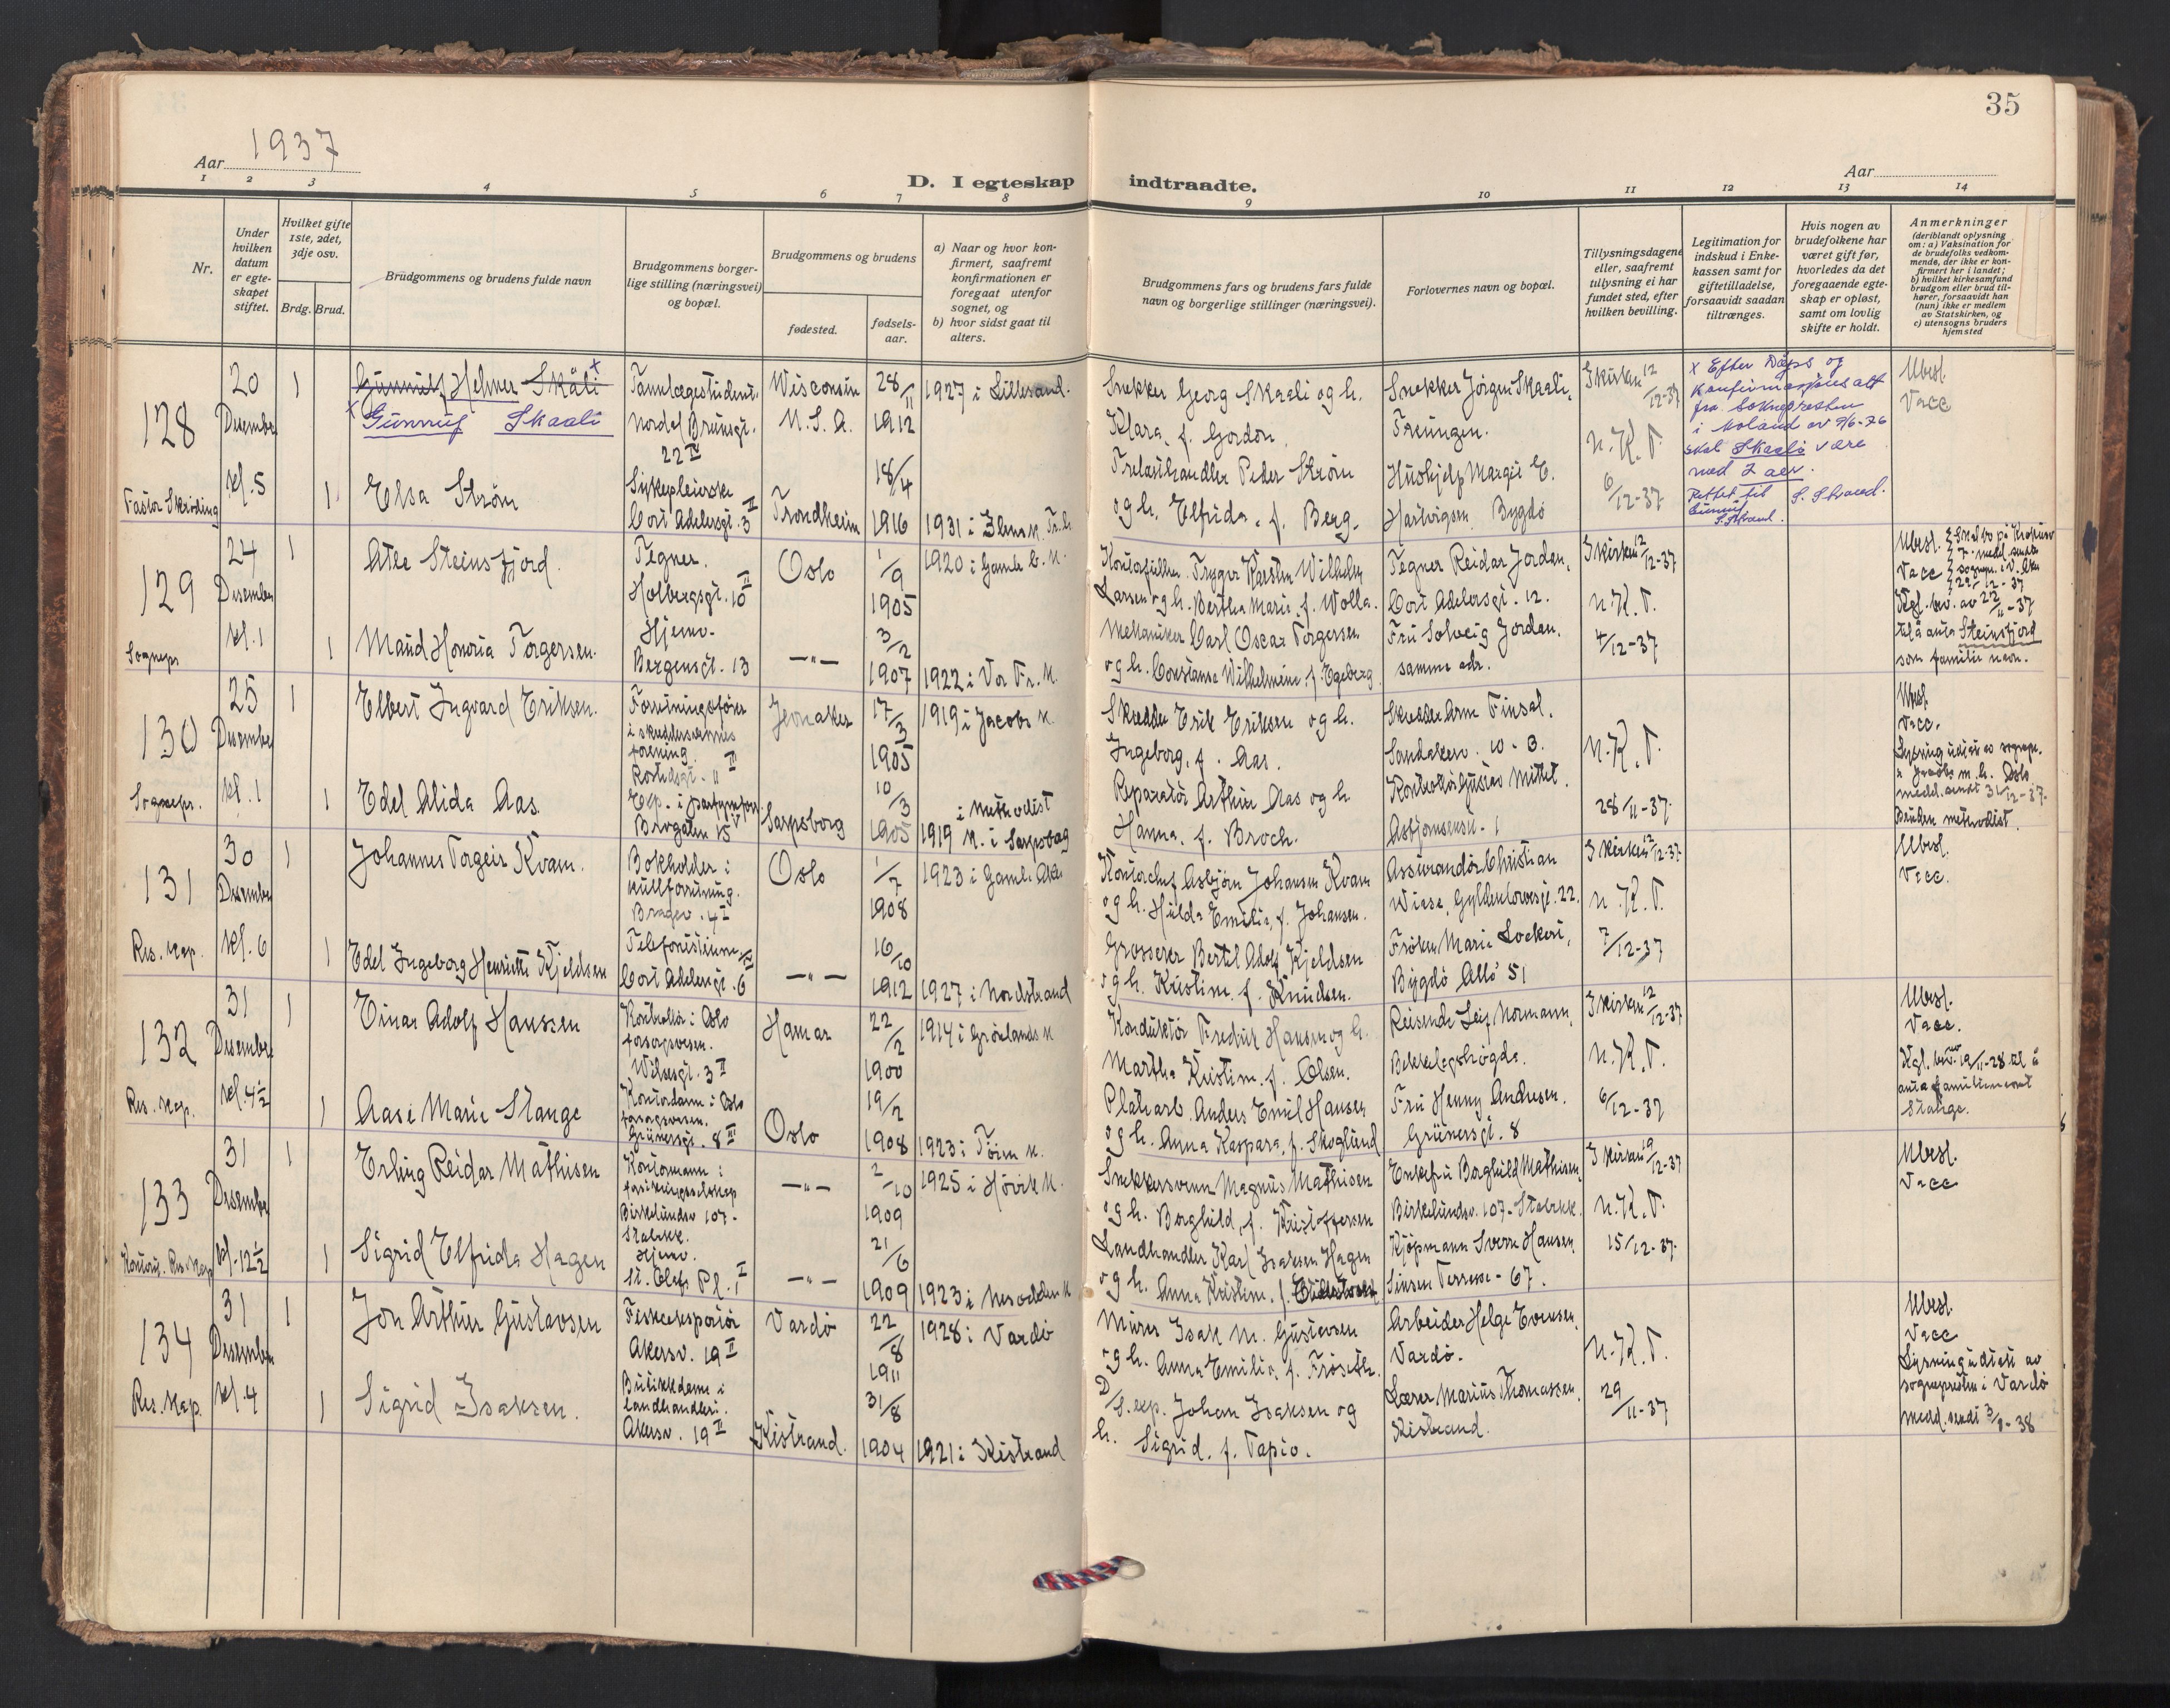 35
Aar 1937
Aar
D. I egteskap indtraadte.
1 2 3 4 5 6 7 8 9 10 11 12 13 14
Nr.
Under hvilken datum er egteskapet stiftet.
Hvilket gifte 1ste, 2det, 3dje osv.
Brdg. Brud.
Brudgommens og brudens fulde navn
Brudgommens borgerlige stilling (næringsvei) og bopæl.
Brudgommens og brudens
fødested.
fødselsaar.
a) Naar og hvor konfirmert, saafremt konfirmationen er foregaat utenfor sognet, og
b) hvor sidst gaat til alters.
Brudgommens fars og brudens fars fulde navn og borgerlige stillinger (næringsvei).
Forlovernes navn og bopæl.
Tillysningsdagene eller, saafremt tillysning ei har fundet sted, efter hvilken bevilling.
Legitimation for indskud i Enkekassen samt for giftetilladelse, forsaavidt saadan tiltrænges.
Hvis nogen av brudefolkene har været gift før, hvorledes da det foregaaende egteskap er opløst, samt om lovlig skifte er holdt.
Anmerkninger
(deriblandt oplysning om: a) Vaksination for de brudefolks vedkommende, der ikke er konfirmert her i landet; b) hvilket kirkesamfund brudgom eller brud tilhører, forsaavidt han (hun) ikke er medlem av Statskirken, og c) utensogns bruders hjemsted
128
20 Desember kl. 5
1
Gunnulf Helmer Skåli x
x Gunnuf Skaali
Tannlægestudent.
Nordal Brunsgt. 22 IV
Wisconsin U.S.A.
28/11 1912
1927 i Lillesand.
Snekker Georg Skaali og h.
Klara, f. Gordon.
Snekker Jörgen Skaali,
I kirken 12/12-37
n.K.T.
x Efter Dåps og
fra soknepresten
i Moland av 9/6-76
skal Skaali være
med 2 aer.
Rettet til
Gunnuf
S. Strand.
S. Strand.
Ubesl.
Vacc
1
Elsa Ström
Sykepleierske
Cort Adelersgt. 3 II
Trondheim
18/4 1916
1931 i Ilens k. Tr.h.
Trelasthandler Peder Ström
og h. Elfrida, f. Berg.
Hushjelp Margit E.
Hartvigsen, Bygdö
6/12-37
129
24 Desember kl. 1
Sognepr.
1
Atle Steinsfjord.
Tegner.
Holbergsgt. 10 II
Oslo
1/9 1905
1920 i Gamle
Kontorfullm. Trygve Karsten Wilhelm
Larsen og h. Bertha Marie f. Wolla.
Tegner Reidar Jordan,
Cort Adelersgt. 12.
I kirken 12/12-37
n.K.T.
Ubesl.
Vacc
Kgl. bev. av 22/11-37
til å anta Steinsfjord
som familie navn.
1
Maud Honoria Torgersen.
Hjemv.
Bergensgt. 13
— " —
3/2 1907
1922 i Vor Fr. k.
Mekaniker Carl Oscar Torgersen
og h. Constanse Wilhelmine f. Egeberg
Fru Solveig Jordan.
samme adr.
4/12-37
130
25 Desember kl. 1
Sognepr.
1
Elbert Ingvard Eriksen.
Forretningsfører
i skreddersvennes
forening.
Jevnaker
17/3 1905
1919 i Jacobs k.
Skredder Erik Eriksen og h.
Ingeborg, f. Aas.
Skredder Arne Finsal.
Sandakerv. 10 - B.
n.K.T.
Ubesl.
Vacc.
Lysning utført av sognepr.
i Jacobs m.h. Oslo.
medd. sendt 31/12-37.
Bruden methodist.
1
Edel Alida Aas.
Exp. i parfymforr.
Brugaten 15 V
Sarpsborg
10/3 1905
1919 i Methodist k. i Sarpsborg
Reparatör Arthur Aas og h
Hanna, f. Broch.
Kontrollör Gustav Mittet.
Asbjørnsensv. 1
28/11-37.
131
30 Desember kl. 6
Res. kap.
1
Johannes Torgeir Kvam.
Bokholder i
kullforretning.
Bragev. 4 I
Oslo
1/7 1908
1923 i Gamle Aker
Kontorchef Asbjörn Johansen Kvam
og h. Hilda Emilie, f. Johansen.
Assurandör Christian
Wiese, Gyldenlövesgt. 22.
I kirken 12/12-37
n.K.T.
Ubesl.
Vacc.
1
Edel Ingeborg Henriette Kjeldsen
Telefonistinne
Cort Adelersgt. 6
— " —
16/10 1912
1927 i Nordstrand
Grosserer Bertel Adolf Kjeldsen
og h. Kristine, f. Knudsen.
Fröken Marie Lockert,
Bygdö Allé 51
7/12-37
132
31 Desember kl. 4½
Res. kap.
1
Einar Adolf Hanssen
Kontrollör i Oslo
forsorgsvesen.
Wilsesgt. 3 II
Hamar
22/2 1900
1914 i Grönlands k
Konduktör Fredrik Hansen og h.
Martha Kristine, f. Olsen.
Reisende Leif Normann,
Bekkelagshögda.
I kirken 12/12-37
n.K.T.
Ubesl.
Vacc.
Kgl. bev. 19/11-28 til å
anta familienavnet
Stange.
1
Aase Marie Stange
Kontordame i Oslo
forsorgsvesen.
Grünersgt. 8 III
Oslo
19/2 1908
1923 i Töien k.
Platearb. Anders Emil Hansen
og h. Anna Kaspara, f. Skoglund
Fru Henny Andresen.
Grünersgt. 8
6/12-37
133
31 Desember kl. 12½
1
Erling Reidar Mathisen
Kontormann i
forsikringsselskap
Birkelundsv 107 -
Stabekk.
— " —
2/10 1909
1925 i Hövik k.
Snekkersvenn Magnus Mathisen
og h. Borghild, f. Kristoffersen
Enkefru Borghild Mathisen,
Birkelundsv. 107 - Stabekk.
I kirken 19/12-37
n.K.T.
Ubesl.
Vacc
1
Sigrid Elfrida Hagen
Hjemv.
St. Olafs Pl. 1 I
— " —
21/6 1909
1923 i Nesodden k
Landhandler Karl Isaksen Hagen
og h. Anna Kristine, f.
Kjöpmann Sverre Hansen,
Sinsen Terrasse - 67.
15/12-37.
134
31 Desember kl. 4
Res. kap.
1
Jon Arthur Gustavsen
Fiskeeksportör
Akersv. 19 II
Vardö
22/8 1911
1928 i Vardö
Murer Isak M. Gustavsen
og h. Anna Emilie, f. Fröseth.
Arbeider Helge Evensen,
Vardö.
n.K.T.
Ubesl.
Vacc
Lysning utført av
sognepresten i Vardö
1
Sigrid Isaksen.
Butikkdame i
landhandleri.
Akersv. 19 II
Kistrand.
31/8 1904
1921 i Kistrand
D/S. exp. Johan Isaksen og
h. Sigrid, f. Tapio.
Lærer Marius Thomassen.
Kistrand.
29/11-37